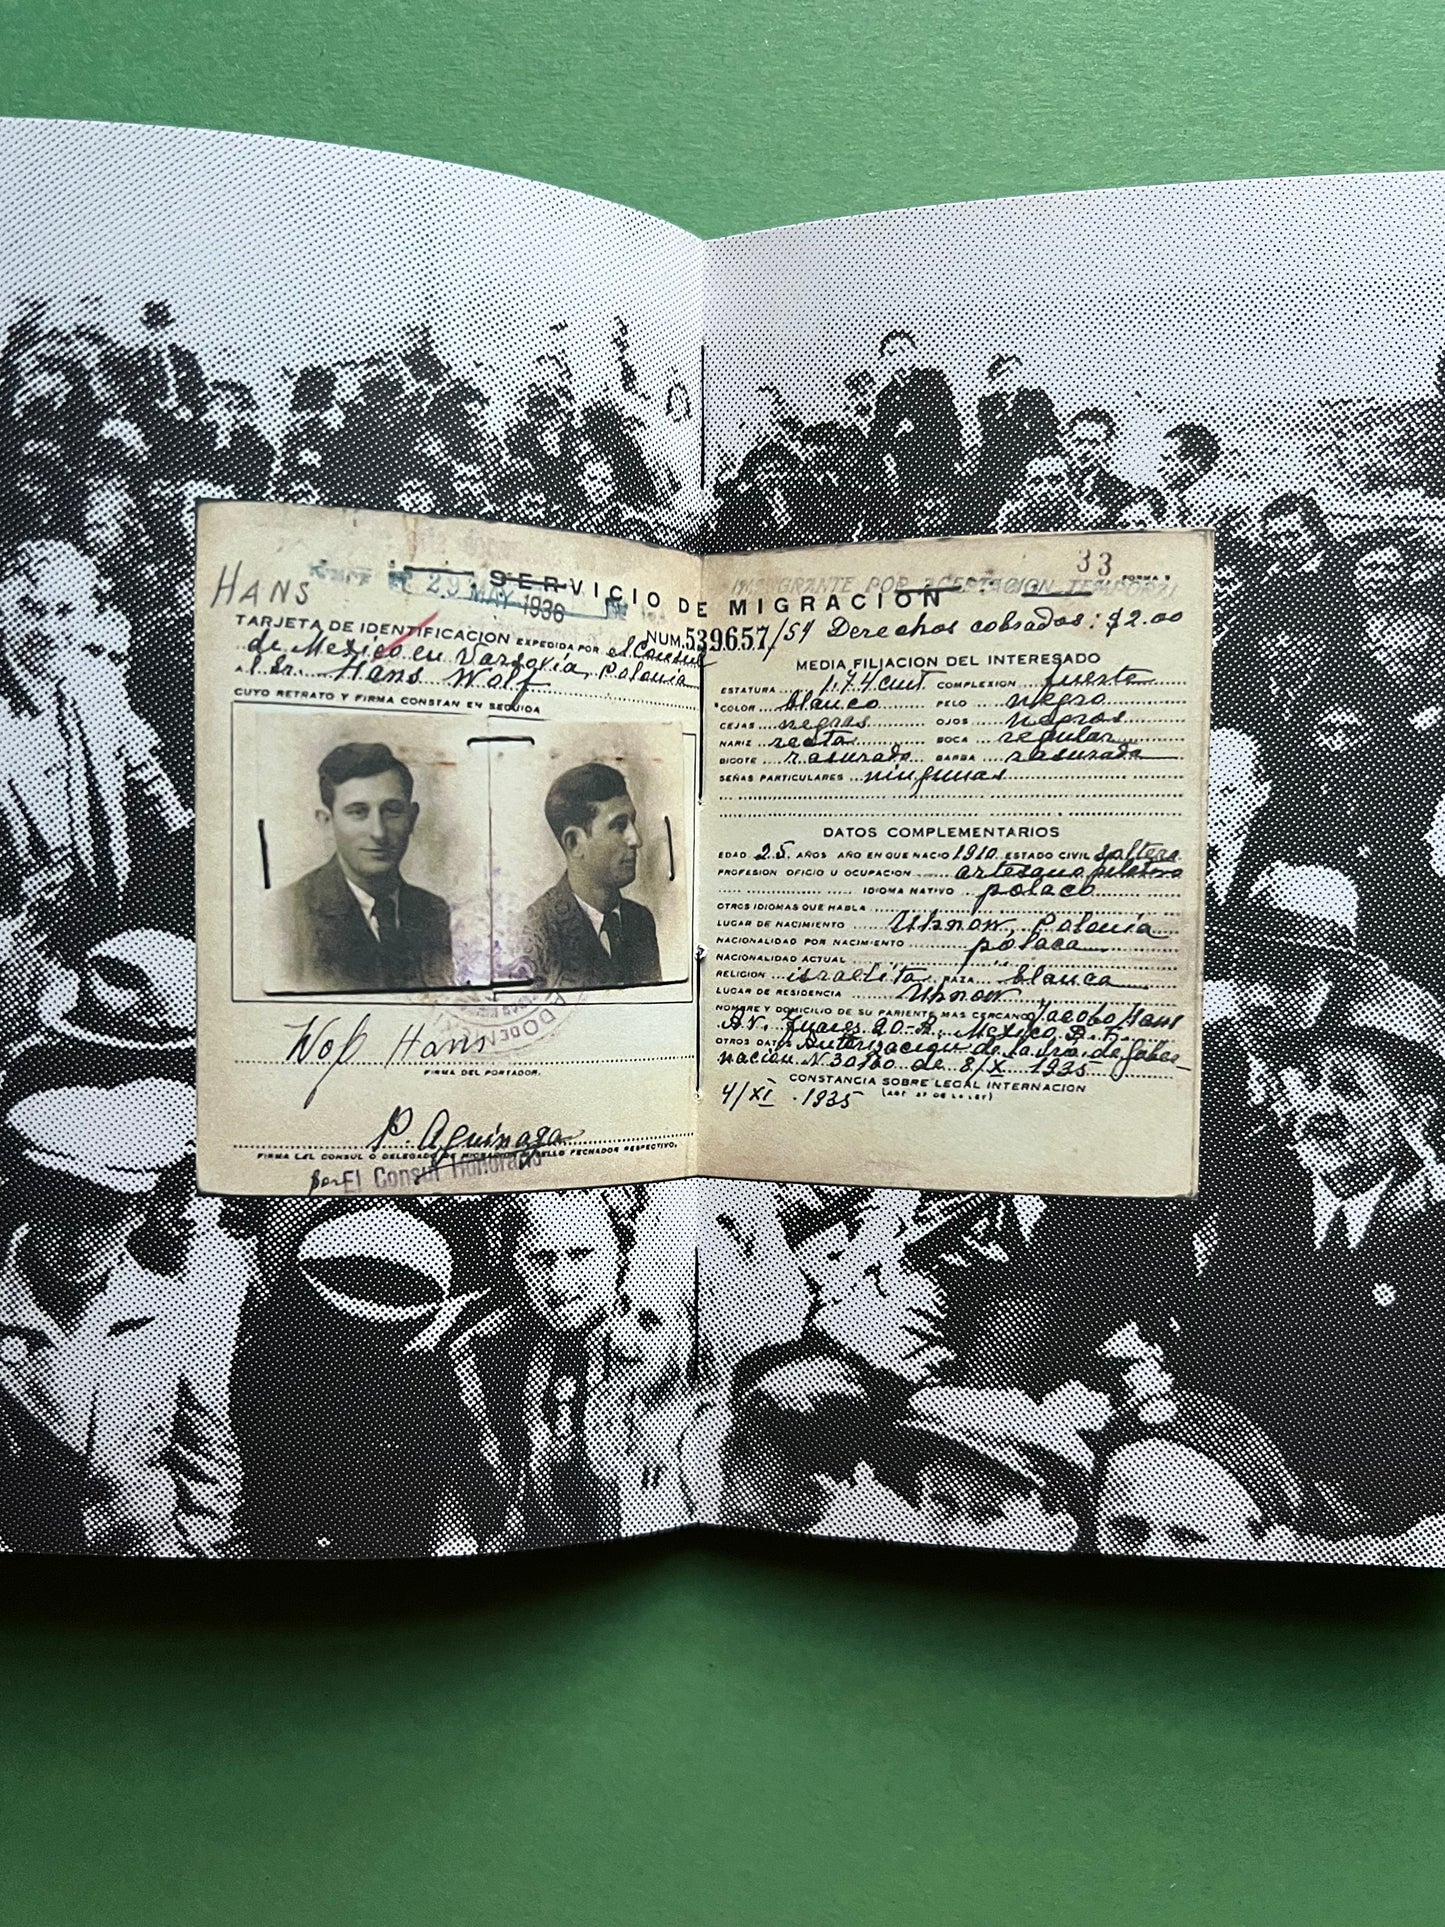 HANS
29 MAY 1936
SERVICIO DE MIGRACION
TARJETA DE IDENTIFICACION EXPEDIDA POR el Consul
de Mexico en Varsovia, Polonia
a l Sr. Hans Wolf
CUYO RETRATO Y FIRMA CONSTAN EN SEGUIDA
Wolf Hans
FIRMA DEL PORTADOR.
P. Aguinaga
FIRMA DEL CONSUL O DELEGADO DE MIGRACION Y SELLO FECHADOR RESPECTIVO.
por El Consul Honorario
33
FORMA 5
INMIGRANTE POR ACEPTACION TEMPORAL
NUM. 539657/54 Derechos cobrados: $2.00
MEDIA FILIACION DEL INTERESADO
ESTATURA 1.74 cmt. COMPLEXION fuerte
COLOR blanco PELO negro
CEJAS negras OJOS negros
NARIZ recta BOCA regular
BIGOTE rasurado BARBA rasurada
SEÑAS PARTICULARES ningunas
DATOS COMPLEMENTARIOS
EDAD 25 AÑOS AÑO EN QUE NACIO 1910 ESTADO CIVIL soltero
PROFESION OFICIO U OCUPACION artesano
IDIOMA NATIVO polaco
OTROS IDIOMAS QUE HABLA
LUGAR DE NACIMIENTO Uhnow, Polonia
NACIONALIDAD POR NACIMIENTO polaca
NACIONALIDAD ACTUAL
RELIGION israelita RAZA blanca
LUGAR DE RESIDENCIA Uhnow
NOMBRE Y DOMICILIO DE SU PARIENTE MAS CERCANO Jacobo Hans
Av. Juares 20-A, Mexico, D. F.
OTROS DATOS Autorizacion de la de Gober
nacion N. de 8/X 1935
CONSTANCIA SOBRE LEGAL INTERNACION
(ART 27 DE LA LEY)
4/XI . 1935